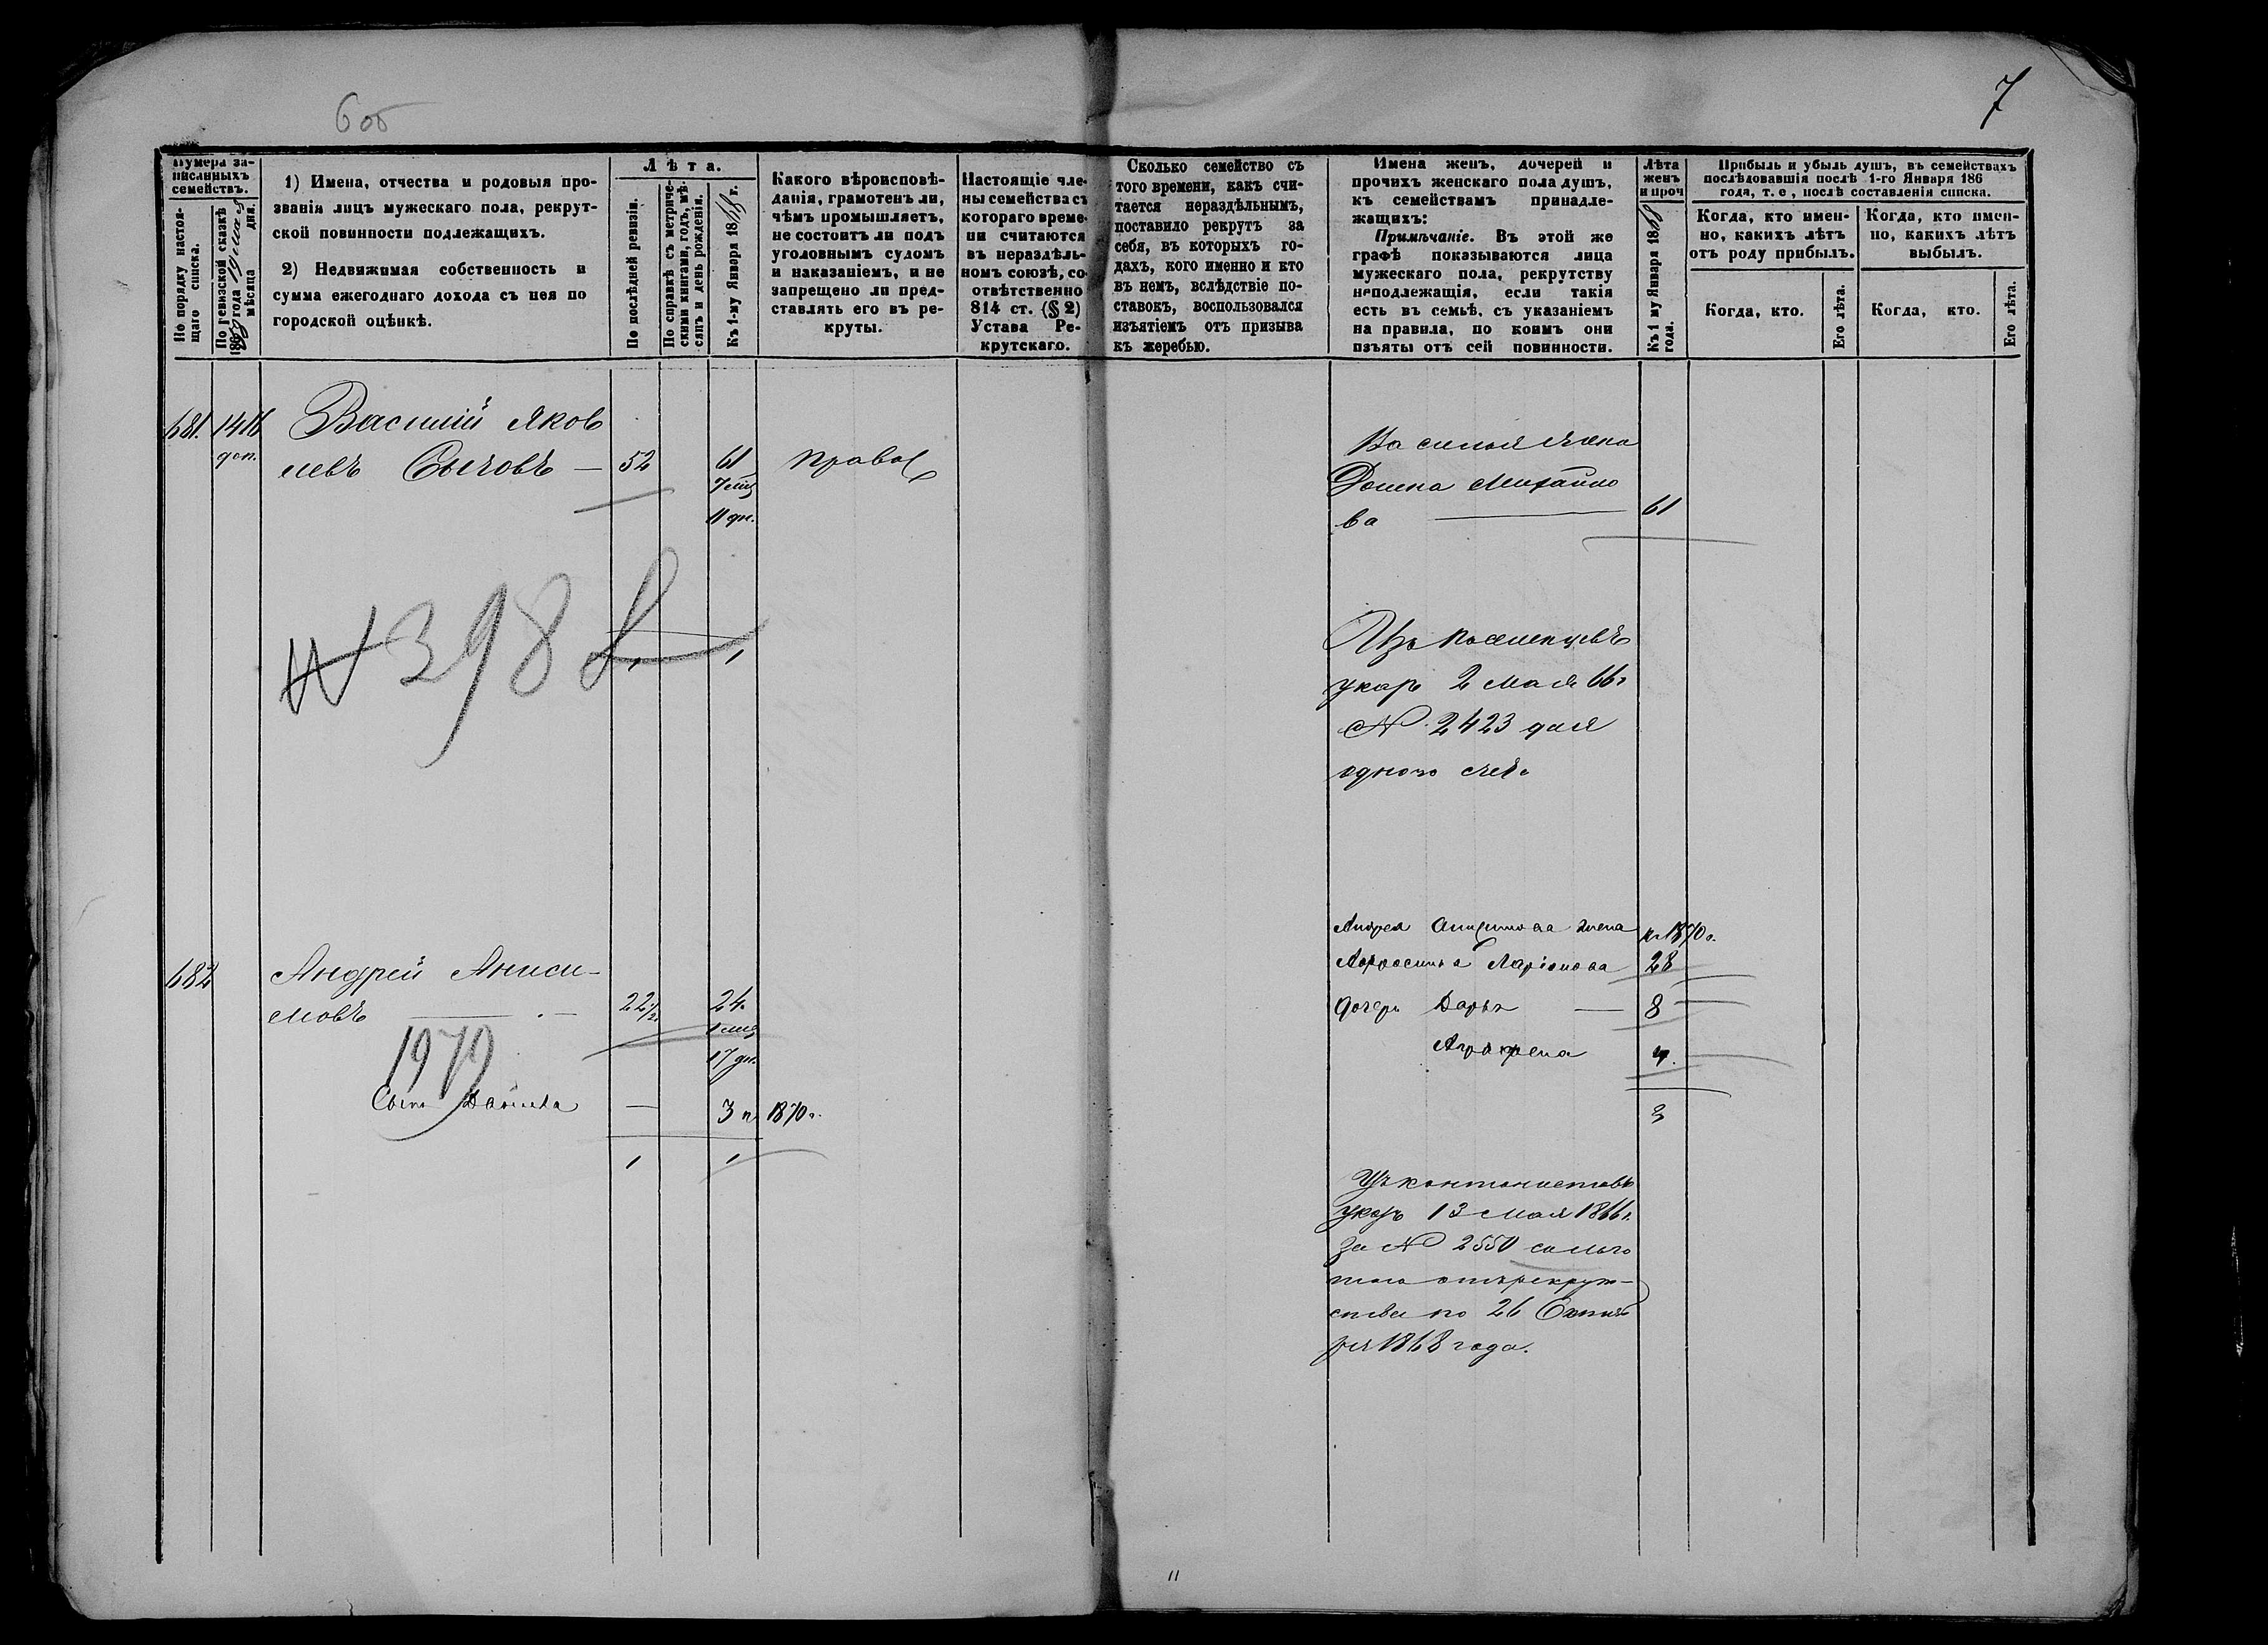 6 об
7
Нумера за-
писанныхъ
семействъ.
По порядку настоя-
щаго списка.
По ревизской сказкѣ
186 года
мѣсяца дня.
1) Имена, отчества и родовыя про-
званія лицъ мужескаго пола, рекрут-
ской повинности подлежащихъ.
2) Недвижимая собственность и
сумма ежегоднаго дохода съ нея по
городской оцѣнкѣ.
Лѣта.
По послѣдней ревизіи.
По справкѣ съ метриче-
скими книгами, годъ, мѣ-
сяцъ и день рожденія.
Къ 1-му Января 1868 г.
Какого вѣроисповѣ-
данія, грамотенъ ли,
чѣмъ промышляетъ,
не состоитъ ли подъ
уголовнымъ судомъ
и наказаніемъ, и не
запрещено ли пред-
ставлять его въ ре-
круты.
Настоящіе чле-
ны семейства съ
котораго време-
ни считаются
въ нераздѣль-
номъ союзѣ, со-
отвѣтственно
814 ст. (§ 2)
Устава Ре-
крутскаго.
Сколько семейство съ
того времени, какъ счи-
тается нераздѣльнымъ,
поставило рекрутъ за
себя, въ которыхъ го-
дахъ, кого именно и кто
въ немъ, вслѣдствіе по-
ставокъ, воспользовался
изъятіемъ отъ призыва
къ жеребью.
Имена женъ, дочерей и
прочихъ женскаго пола душъ,
къ семействамъ принадле-
жащихъ:
Примѣчаніе. Въ этой же
графѣ показываются лица
мужескаго пола, рекрутству
неподлежащія, если такія
есть въ семьѣ, съ указаніемъ
на правила, по коимъ они
изъяты отъ сей повинности.
Лѣта
женъ
и проч
Къ 1 му Января 1868
года.
Прибыль и убыль душъ, въ семействахъ
послѣдовавшія послѣ 1-го Января 186
года, т. е, послѣ составленія списка.
Когда, кто имен-
но, какихъ лѣтъ
отъ роду прибылъ.
Когда, кто имен-
но, какихъ лѣтъ
выбылъ.
Когда, кто.
Его лѣта.
Когда, кто.
Его лѣта.
681. 1416 Василій Яков
доп. левъ Сычовъ — 52 61 Правос
7 мѣс
11 дн.
Василья жена
Домна Михайло
ва — 61
№ 398
1 1
Изъ поселенцевъ
указъ 2 Мая 66 г
№ 2423 для
одного счета
682 Андрей Аниси-
мовъ — 22 1/2 24
1 мѣс
17 дн.
1979
Сынъ Данила — 3 къ 1870 г.
1 1
Андрея Анисимова жена къ 1870 г.
Афросинья Ларіонова 28
дочери Дарья — 8
Аграфена 4.
3
Изъ кантонистовъ
указъ 13 Мая 1866 г.
за № 2550 съ льго
тою отъ рекрут-
ства по 26 Октяб
ря 1868 года.